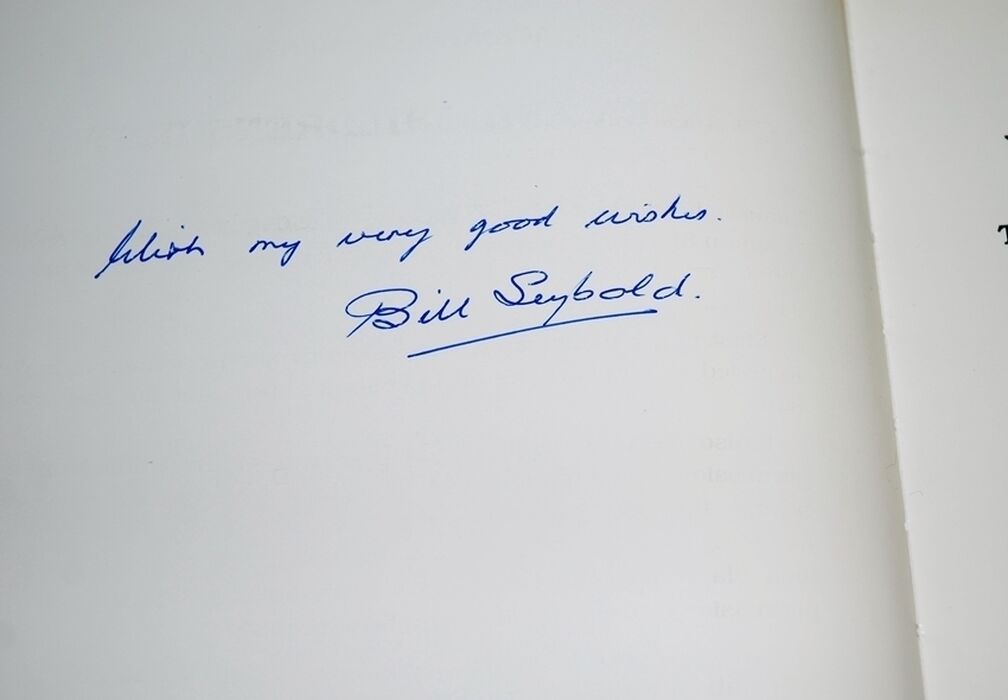 With my very good wishes.
Bill Seybold.